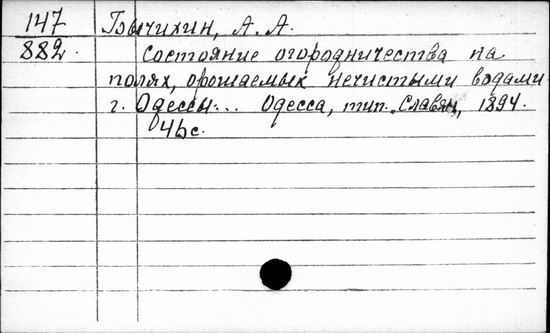 147 Бычихин, А. А.
882. Состояние огородничества на
полях, орошаемых нечистыми водами
г. Одессы... Одесса, тип. "Славян", 1894.
46 с.